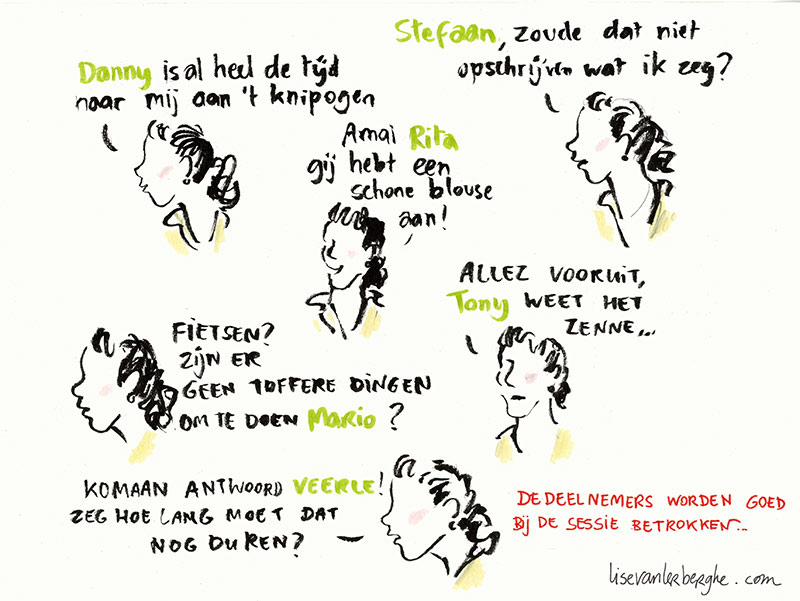 Danny is al heel de tijd
naar mij aan 't knipogen
Stefaan, zoude dat niet
opschrijven wat ik zeg?
Amai Rita
gij hebt een
schone blouse
aan!
ALLEZ VOORUIT,
Tony WEET HET
ZENNE...
FIETSEN?
ZIJN ER
GEEN TOFFERE DINGEN
OM TE DOEN Mario?
KOMAAN ANTWOORD VEERLE!
ZEG HOE LANG MOET DAT
NOG DUREN?
DE DEELNEMERS WORDEN GOED
BIJ DE SESSIE BETROKKEN...
lisevanlerberghe.com